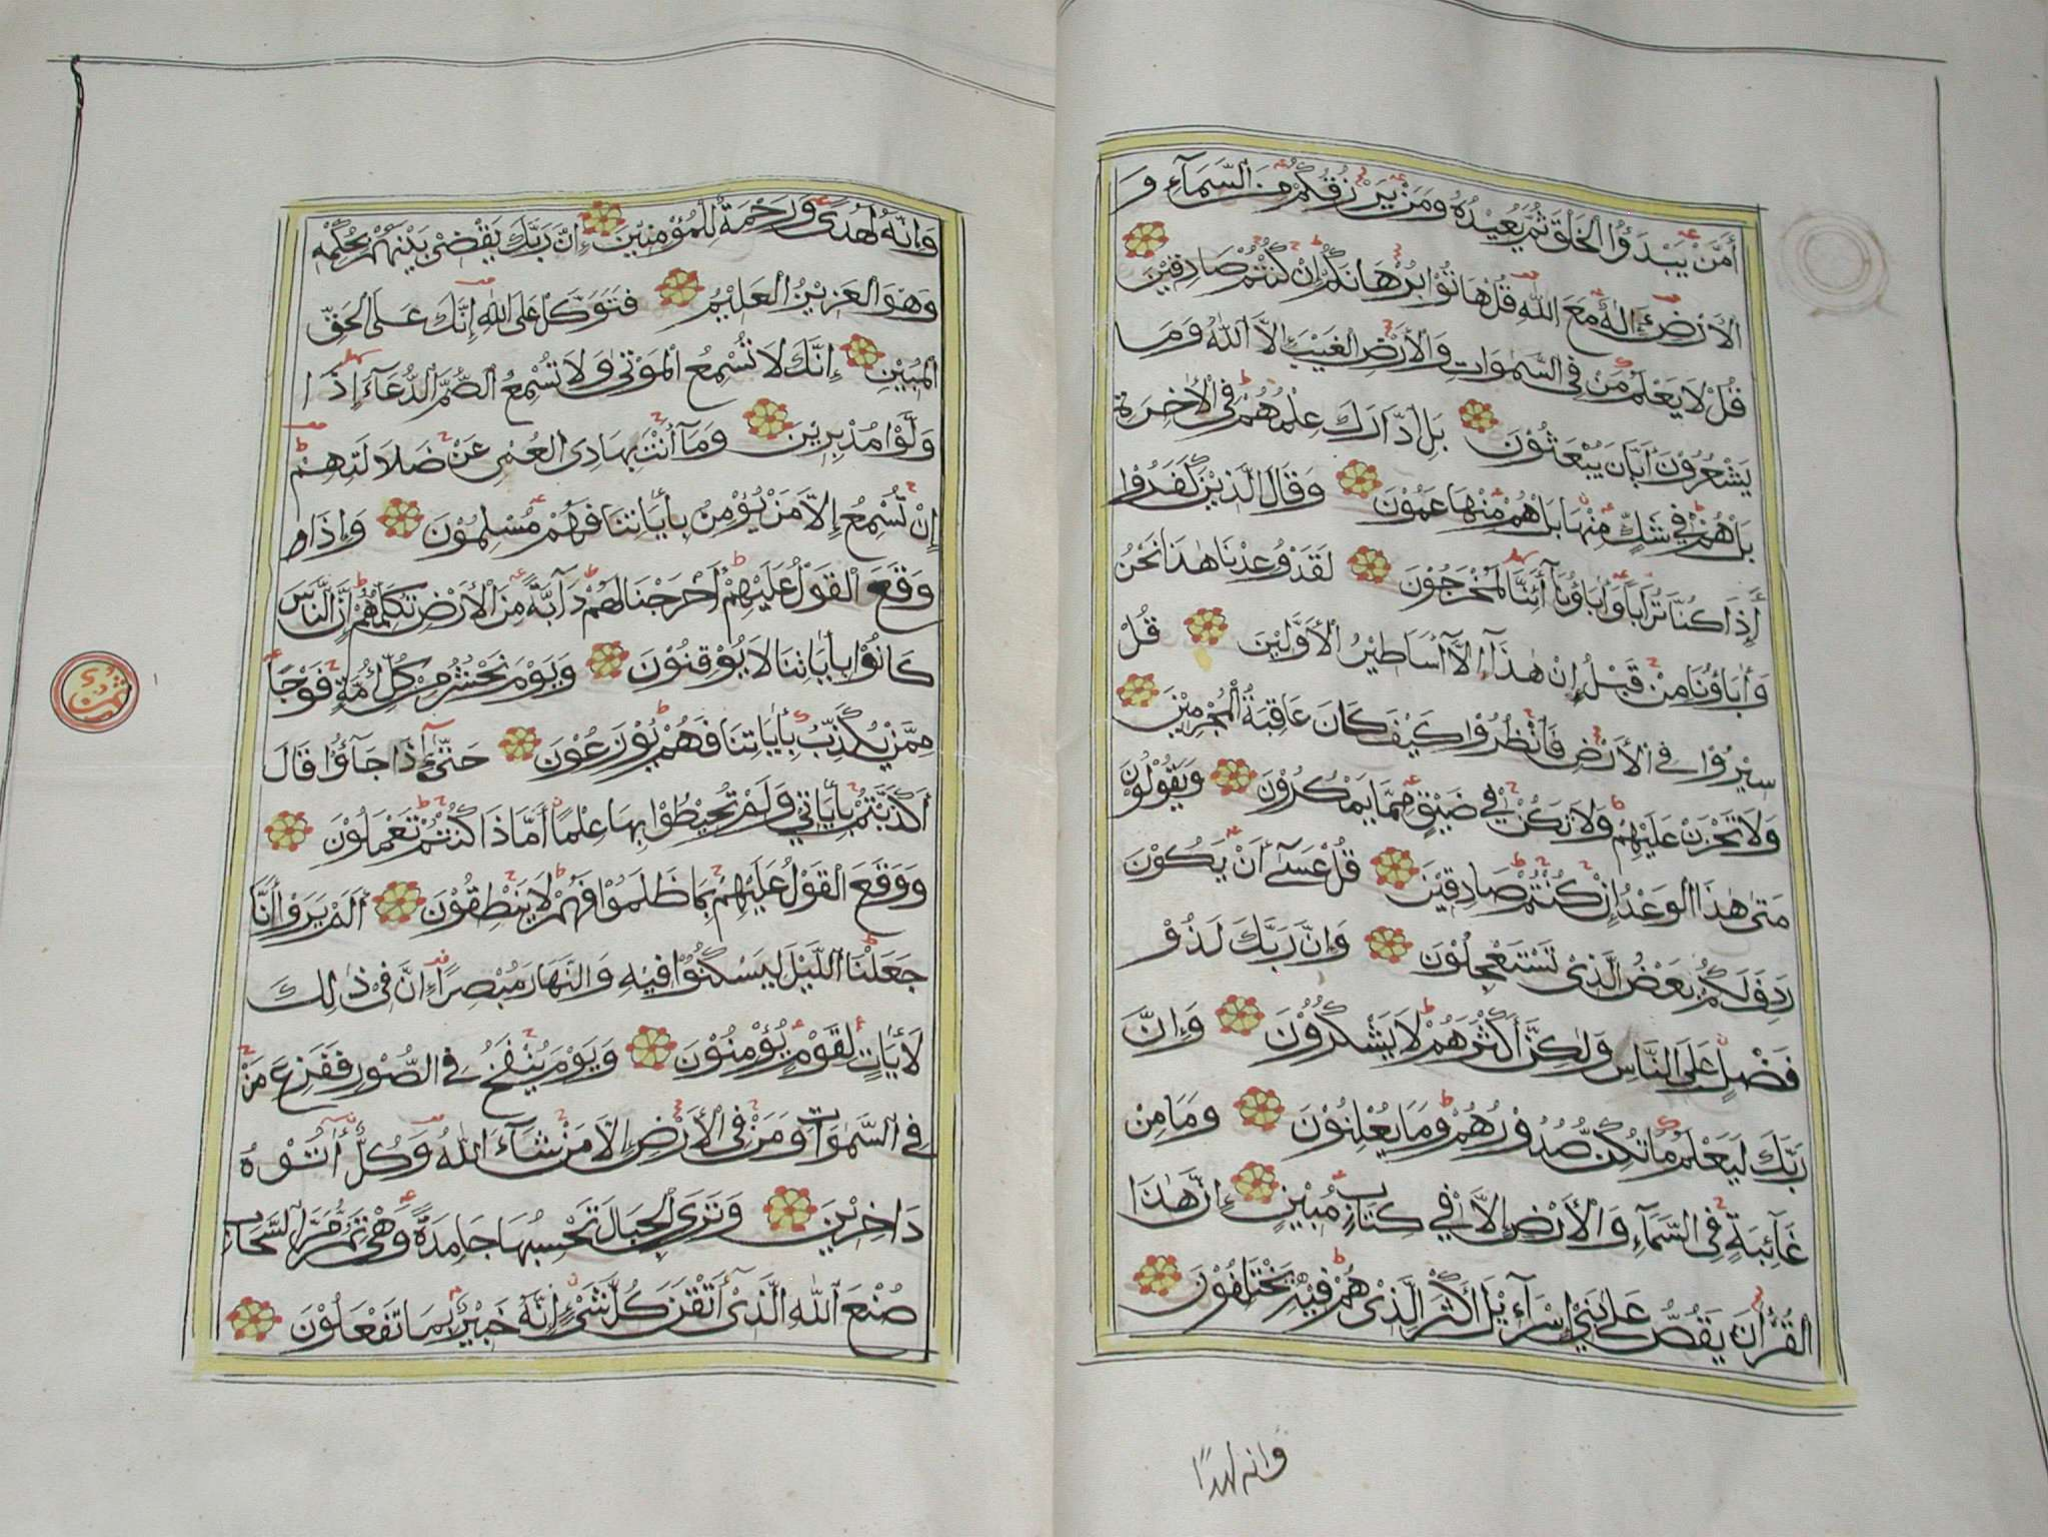 أَمَّنْ يَبْدَؤُا الْخَلْقَ ثُمَّ يُعِيْدُهُ وَمَنْ يَرْزُقُكُمْ مِنَ السَّمَآءِ وَ
الْأَرْضِ ءَإِلٰهٌ مَعَ اللّٰهِ قُلْ هَاتُوْا بُرْهَانَكُمْ إِنْ كُنْتُمْ صَادِقِيْنَ
قُلْ لَا يَعْلَمُ مَنْ فِى السَّمٰوَاتِ وَالْأَرْضِ الْغَيْبَ إِلَّا اللّٰهُ وَمَا
يَشْعُرُوْنَ أَيَّانَ يُبْعَثُوْنَ بَلِ ادَّارَكَ عِلْمُهُمْ فِى الْأٰخِرَةِ
بَلْ هُمْ فِي شَكٍّ مِنْهَا بَلْ هُمْ مِنْهَا عَمُوْنَ وَقَالَ الَّذِيْنَ كَفَرُوْا
أَإِذَا كُنَّا تُرَابًا وَأٰبَاؤُنَآ أَئِنَّا لَمُخْرَجُوْنَ لَقَدْ وُعِدْنَا هٰذَا نَحْنُ
وَأٰبَاؤُنَا مِنْ قَبْلُ إِنْ هٰذَآ إِلَّآ أَسَاطِيْرُ الْأَوَّلِيْنَ قُلْ
سِيْرُوْا فِي الْأَرْضِ فَانْظُرُوْا كَيْفَ كَانَ عَاقِبَةُ الْمُجْرِمِيْنَ
وَلَا تَحْزَنْ عَلَيْهِمْ وَلَا تَكُنْ فِي ضَيْقٍ مِمَّا يَمْكُرُوْنَ وَيَقُوْلُوْنَ
مَتٰى هٰذَا الْوَعْدُ إِنْ كُنْتُمْ صَادِقِيْنَ قُلْ عَسٰٓى أَنْ يَكُوْنَ
رَدِفَ لَكُمْ بَعْضُ الَّذِيْ تَسْتَعْجِلُوْنَ وَإِنَّ رَبَّكَ لَذُوْ
فَضْلٍ عَلَى النَّاسِ وَلٰكِنَّ أَكْثَرَهُمْ لَا يَشْكُرُوْنَ وَإِنَّ
رَبَّكَ لَيَعْلَمُ مَا تُكِنُّ صُدُوْرُهُمْ وَمَا يُعْلِنُوْنَ وَمَا مِنْ
غَآئِبَةٍ فِى السَّمَآءِ وَالْأَرْضِ إِلَّا فِي كِتَابٍ مُبِيْنٍ إِنَّ هٰذَا
الْقُرْأٰنَ يَقُصُّ عَلٰى بَنِيْ إِسْرَآءِيْلَ أَكْثَرَ الَّذِىْ هُمْ فِيْهِ يَخْتَلِفُوْنَ
وانه لهدًا
وَإِنَّهُ لَهُدًى وَرَحْمَةٌ لِلْمُؤْمِنِيْنَ إِنَّ رَبَّكَ يَقْضِى بَيْنَهُمْ بِحُكْمِهِ
وَهُوَ الْعَزِيْزُ الْعَلِيْمُ فَتَوَكَّلْ عَلَى اللّٰهِ إِنَّكَ عَلَى الْحَقِّ
الْمُبِيْنِ إِنَّكَ لَا تُسْمِعُ الْمَوْتٰى وَلَا تُسْمِعُ الصُّمَّ الدُّعَآءَ إِذَا
وَلَّوْا مُدْبِرِيْنَ وَمَآ أَنْتَ بِهَادِى الْعُمْىِ عَنْ ضَلَالَتِهِمْ
إِنْ تُسْمِعُ إِلَّا مَنْ يُؤْمِنُ بِأٰيَاتِنَا فَهُمْ مُسْلِمُوْنَ وَإِذَا
وَقَعَ الْقَوْلُ عَلَيْهِمْ أَخْرَجْنَا لَهُمْ دَآبَّةً مِنَ الْأَرْضِ تُكَلِّمُهُمْ إِنَّ النَّاسَ
كَانُوْا بِأٰيَاتِنَا لَا يُوْقِنُوْنَ وَيَوْمَ نَحْشُرُ مِنْ كُلِّ أُمَّةٍ فَوْجًا
مِمَّنْ يُكَذِّبُ بِأٰيَاتِنَا فَهُمْ يُوْزَعُوْنَ حَتّٰىٓ إِذَا جَآؤُا قَالَ
أَكَذَّبْتُمْ بِأٰيَاتِي وَلَمْ تُحِيْطُوْا بِهَا عِلْمًا أَمَّاذَا كُنْتُمْ تَعْمَلُوْنَ
وَوَقَعَ الْقَوْلُ عَلَيْهِمْ بِمَا ظَلَمُوْا فَهُمْ لَا يَنْطِقُوْنَ أَلَمْ يَرَوْا أَنَّا
جَعَلْنَا اللَّيْلَ لِيَسْكُنُوْا فِيْهِ وَالنَّهَارَ مُبْصِرًا إِنَّ فِىْ ذٰلِكَ
لَأٰيَاتٍ لِقَوْمٍ يُؤْمِنُوْنَ وَيَوْمَ يُنْفَخُ فِي الصُّوْرِ فَفَزِعَ مَنْ
فِى السَّمٰوَاتِ وَمَنْ فِى الْأَرْضِ إِلَّا مَنْ شَآءَ اللّٰهُ وَكُلٌّ أَتَوْهُ
دَاخِرِيْنَ وَتَرَى الْجِبَالَ تَحْسَبُهَا جَامِدَةً وَهْىَ تَمُرُّ مَرَّ السَّحَابِ
صُنْعَ اللّٰهِ الَّذِىْٓ أَتْقَنَ كُلَّ شَىْءٍ إِنَّهُ خَبِيْرٌ بِمَا تَفْعَلُوْنَ